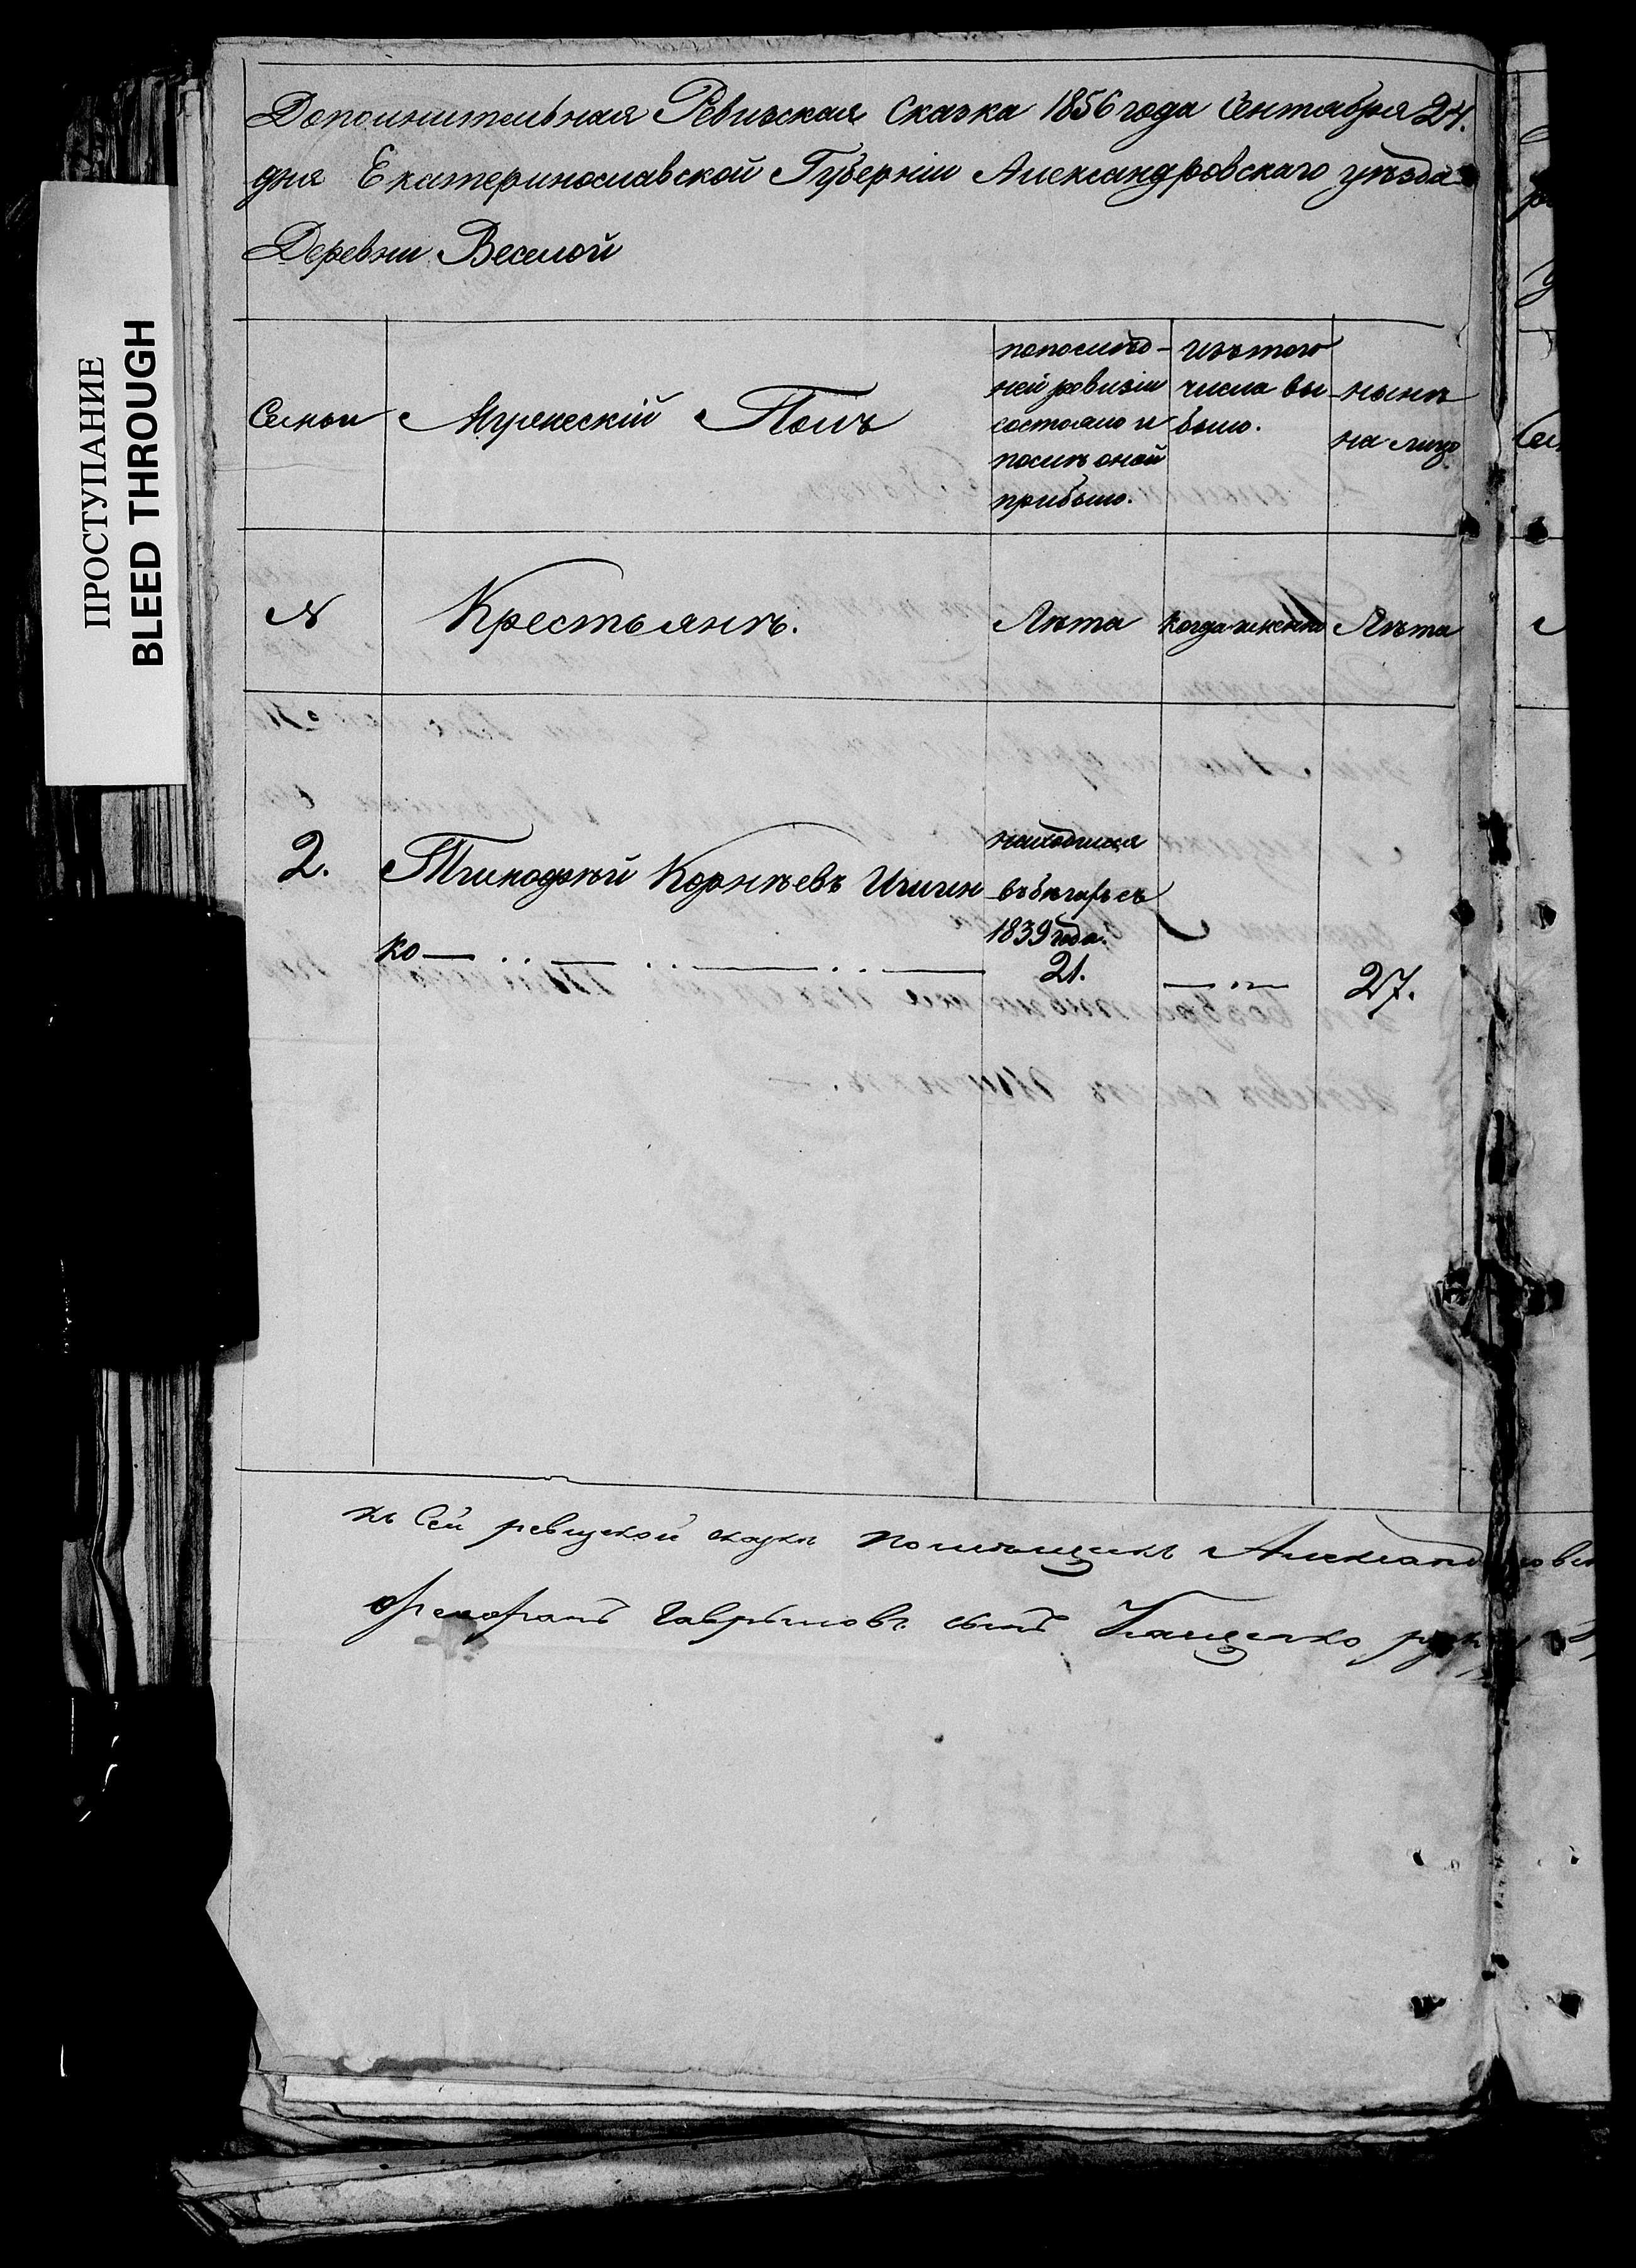 ПРОСТУПАНИЕ
BLEED THROUGH
Дополнительная Ревизская Сказка 1856 года Сентября 24.
дня Екатеринославской Губерніи Александровскаго уѣзда
Деревни Веселой
Семьи
Мужескій Полъ
по послѣд-
ней ревизіи
состояло и
послѣ оной
прибыло.
Изъ того
числа вы
было.
нынѣ
на лицо
№
Крестьянъ.
Лѣта
когда именно
Лѣта
2.
Корнѣевъ
ко
находился
въ бѣгахъ съ
1839 года.
21.
27.
къ Сей ревизской сказкѣ помѣщикъ
Гавриловъ сынъ